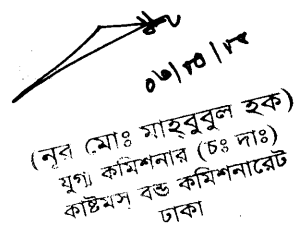 (নূর মোঃ মাহবুবুল হক)
যুগ্ম কমিশনার (চঃ দাঃ)
কাষ্টমস্ বন্ড কমিশনারেট
ঢাকা